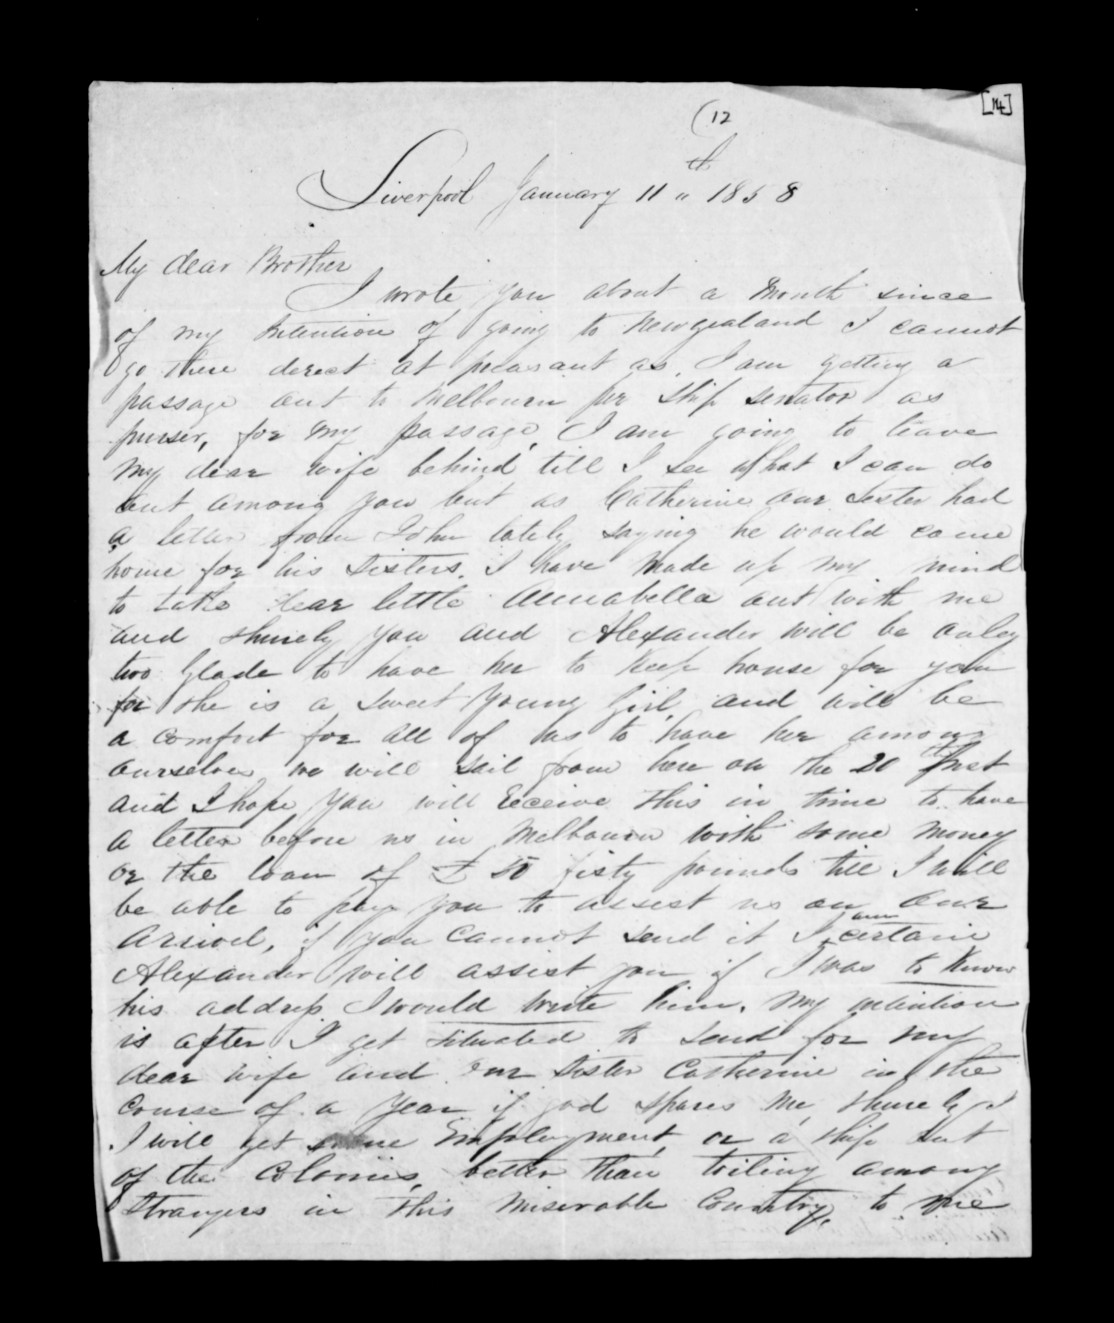 (12
[14]
Liverpool January 11th 1858
My dear Brother
I wrote you about a Month since
of my Intention of going to Newzealand I cannot
go there derect at pleasant as, I am getting a
passage out to Melbourn per Ship Senator as
purser, for my passage, I am going to leave
My dear wife behind till I see What I can do
out among you but as Catherine our Sester had
a letter from John lately saying he would come
home for his Sisters. I have made up my mind
to take dear little Annabella out with me
and shurely you and Alexander will be onley
two glade to have her to Keep house for you
for she is a sweet young Girl, and will be
a comfort for all of us to have her among
ourselves, we will sail from here on the 20th Inst
and I hope you will Receive this in time to have
a letter before us in Melbourn with some money
or the loan of £ 50 fifty pounds till I will
be able to pay you to assest us on our
Arivel, if you cannot send it I am certain
Alexander will assist you if I was to Know
his address I would write him. My intention
is after I get situated to send for my
dear wife and our Sister Catherine in the
course of a year if god spares me shurely I
I will get some Employment, or a ship out
of the Colonies, better than toiling among
Strangers in this Miserable Country, to me